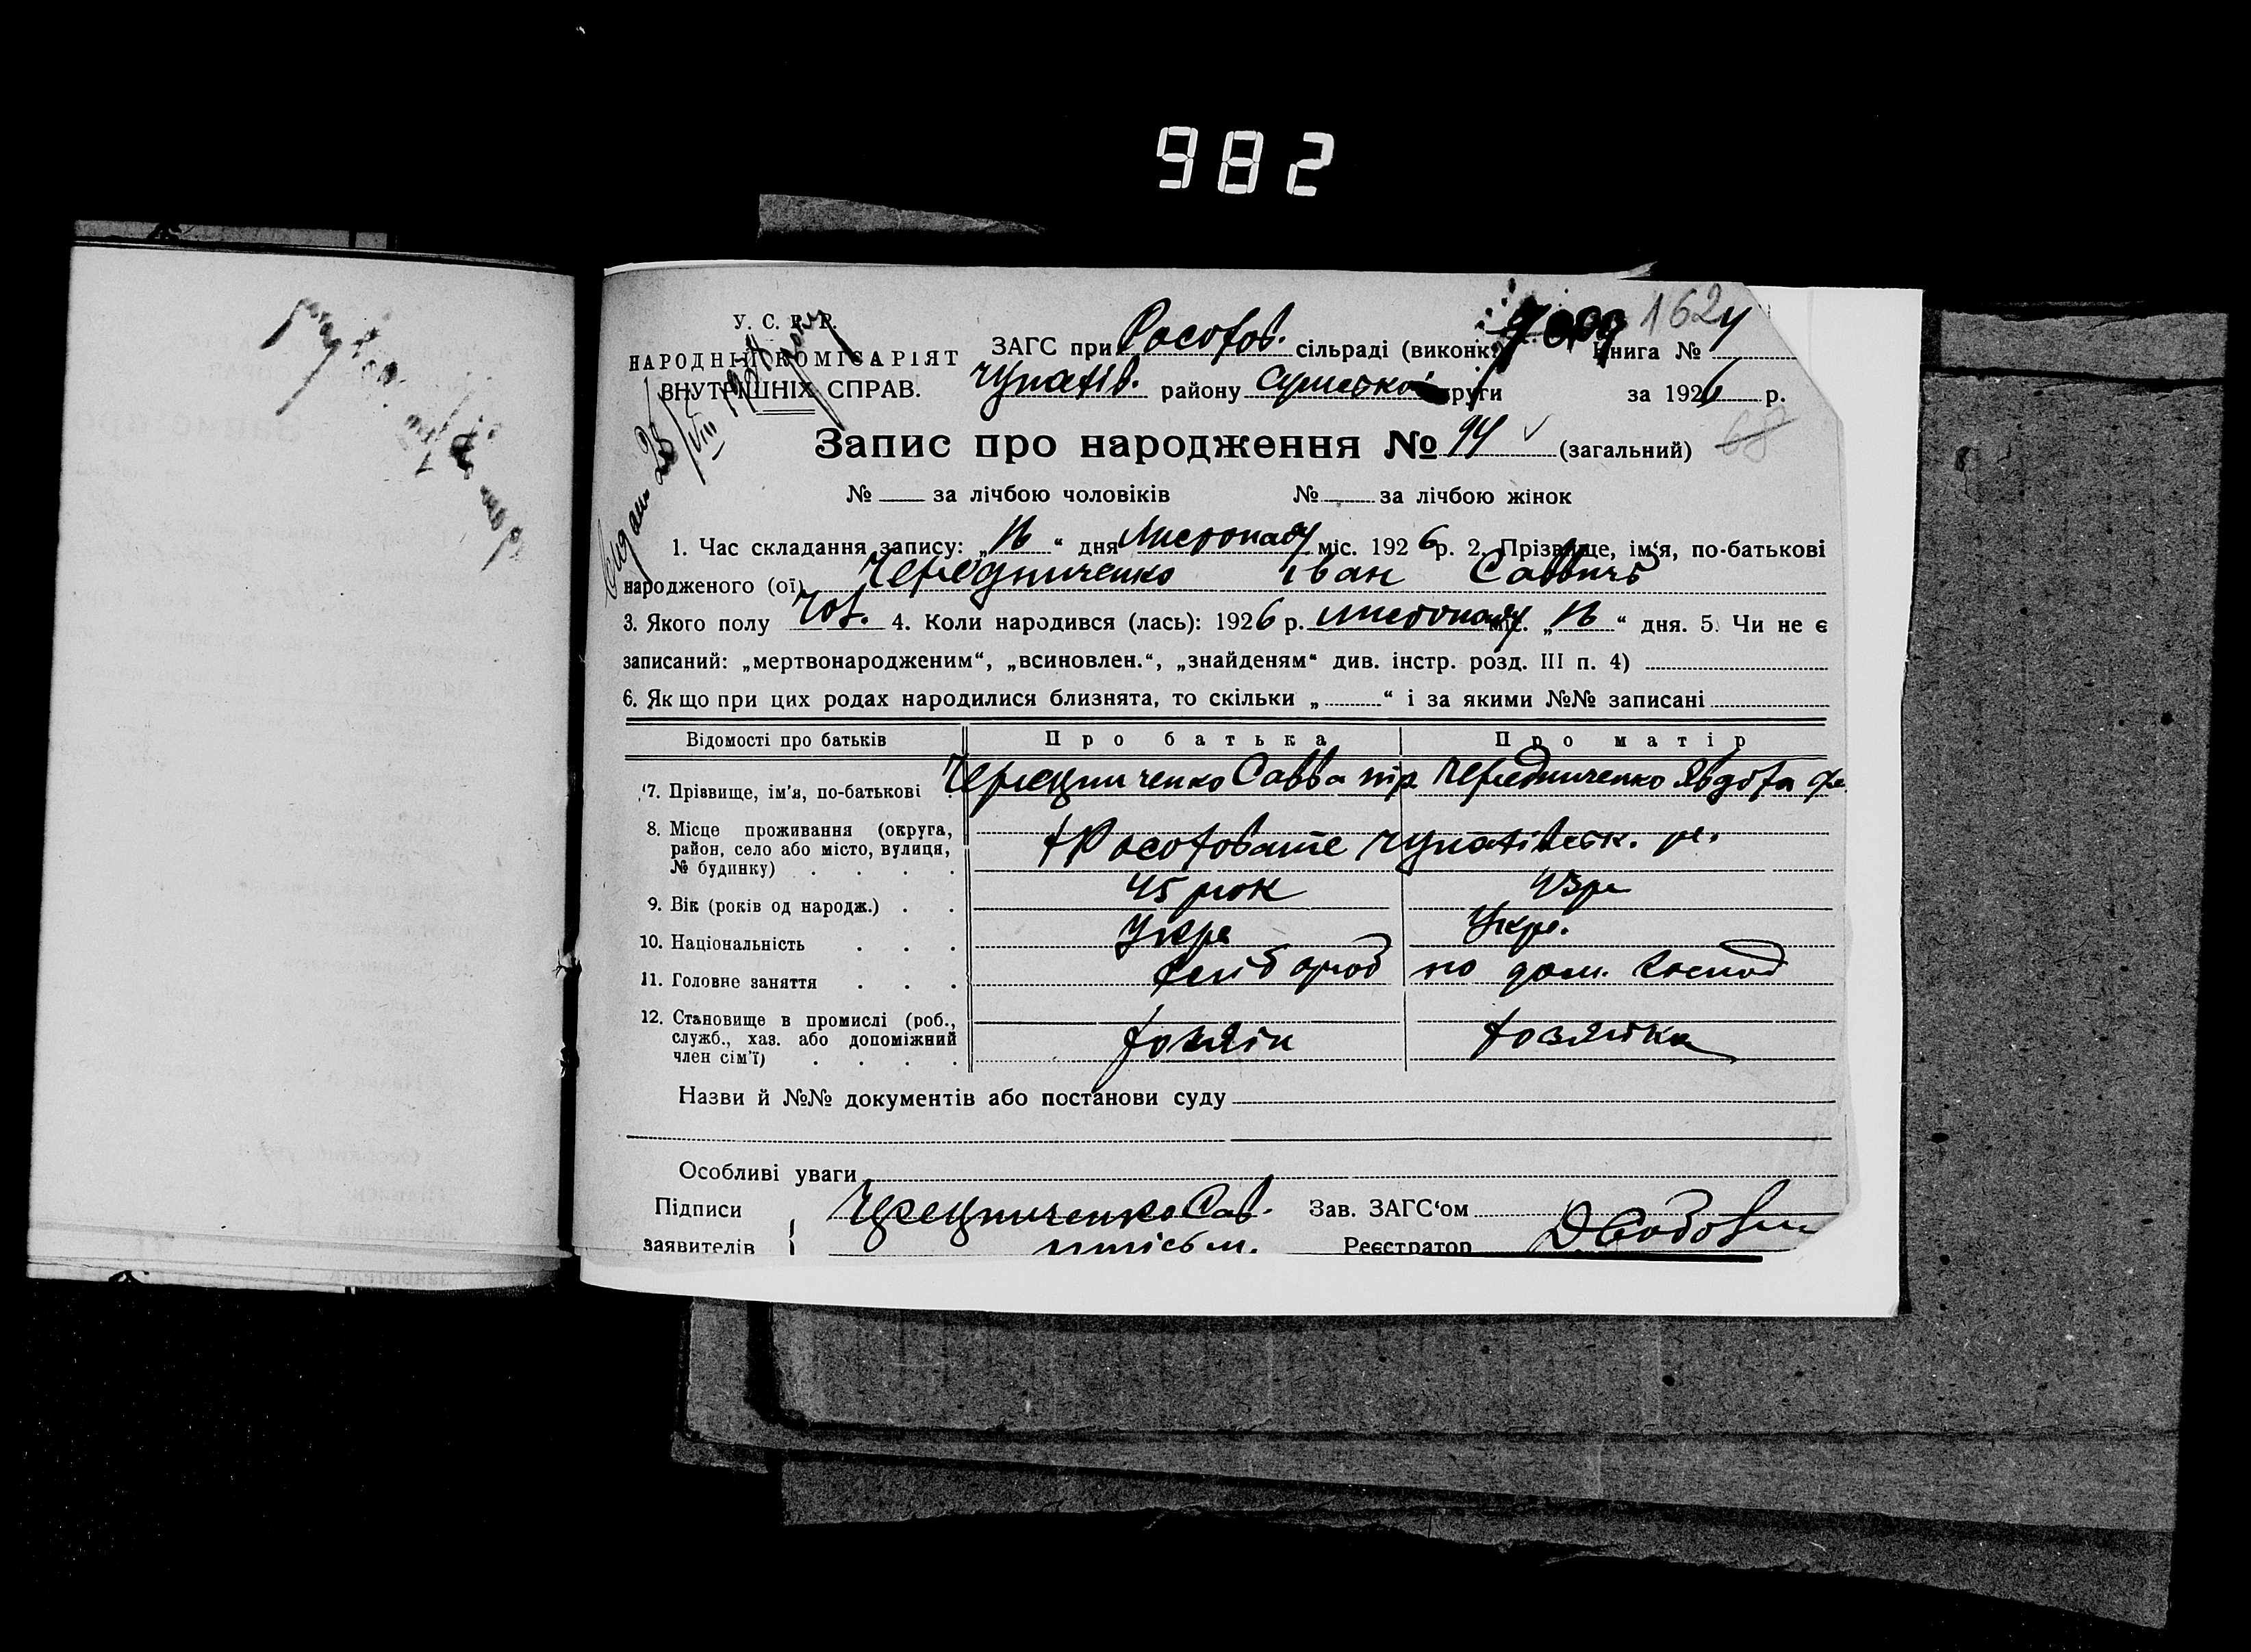 982
У. С. Р. Р.
НАРОДНІЙ КОМІСАРІЯТ
ВНУТРІШНІХ СПРАВ.
1624
ЗАГС при Росохов. сільраді (виконк.) Книга №
Чупахів. району Сумської округи за 1926 р.
Запис про народження № 94 (загальний) 68
№ за лічбою чоловіків № за лічбою жінок
1. Час складання запису: „16“ дня Листопаду міс. 1926 р. 2. Прізвище, ім‘я, по-батькові
народженого (ої) Чередниченко Іван Саввичь
3. Якого полу чол. 4. Коли народився (лась): 1926 р. листопаду міс. „16“ дня. 5. Чи не є
записаний: „мертвонародженим“, „всиновлен.“, „знайденям“ див. інстр. розд. III п. 4)
6. Як що при цих родах народилися близнята, то скільки „ “ і за якими №№ записані
Відомості про батьків Про батька Про матір
7. Прізвище, ім'я, по-батькові Чередниченко Савва Чередниченко Явдоха
8. Місце проживання (округа,
район, село або місто, вулиця,
№ будинку)
Росоховате Чупахівськ. р.
9. Вік (років од народж.) 45 рок 43 р
10. Національність Укра Укр.
11. Головне заняття хлібороб по дом. господ
12. Становище в промислі (роб.,
служб., хаз. або допоміжний
член сім'ї)
хозяін хозяйка
Назви й №№ документів або постанови суду
Особливі уваги
Підписи Чередниченко Сав. Зав. ЗАГС‘ом
заявителів письм. Реєстратор